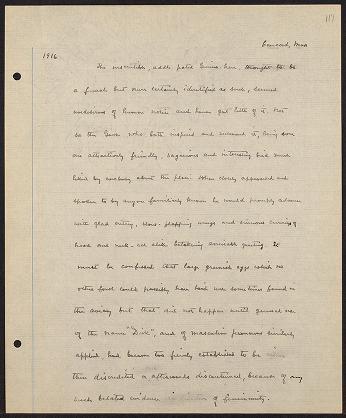 117
Concord, Mass
1916.
The irascible, addle pated Guinea hen, thought to be
a female but never certainly identified as such, seemed
undesirous of human notice and hence got little of it. Not
so the Goose who both inspired and welcomed it, being soon
an attractively friendly, sagacious and interesting bird much
liked by everybody about the place. When closely approached and
spoken to by anyone familiarly known he would promptly advance
with glad outcry, slow-flapping wings and sinuous curvings of
head and neck all alike betokening amicable greeting. It
must be confessed that large greenish eggs which no
other fowl could possibly have laid were sometimes found in
the but that did not happen until general use
of the name "Dick", and of masculine pronouns similarly
applied, had become too firmly established to be
then discredited or afterwards discontinued, because of any
such belated evidence of femininity.